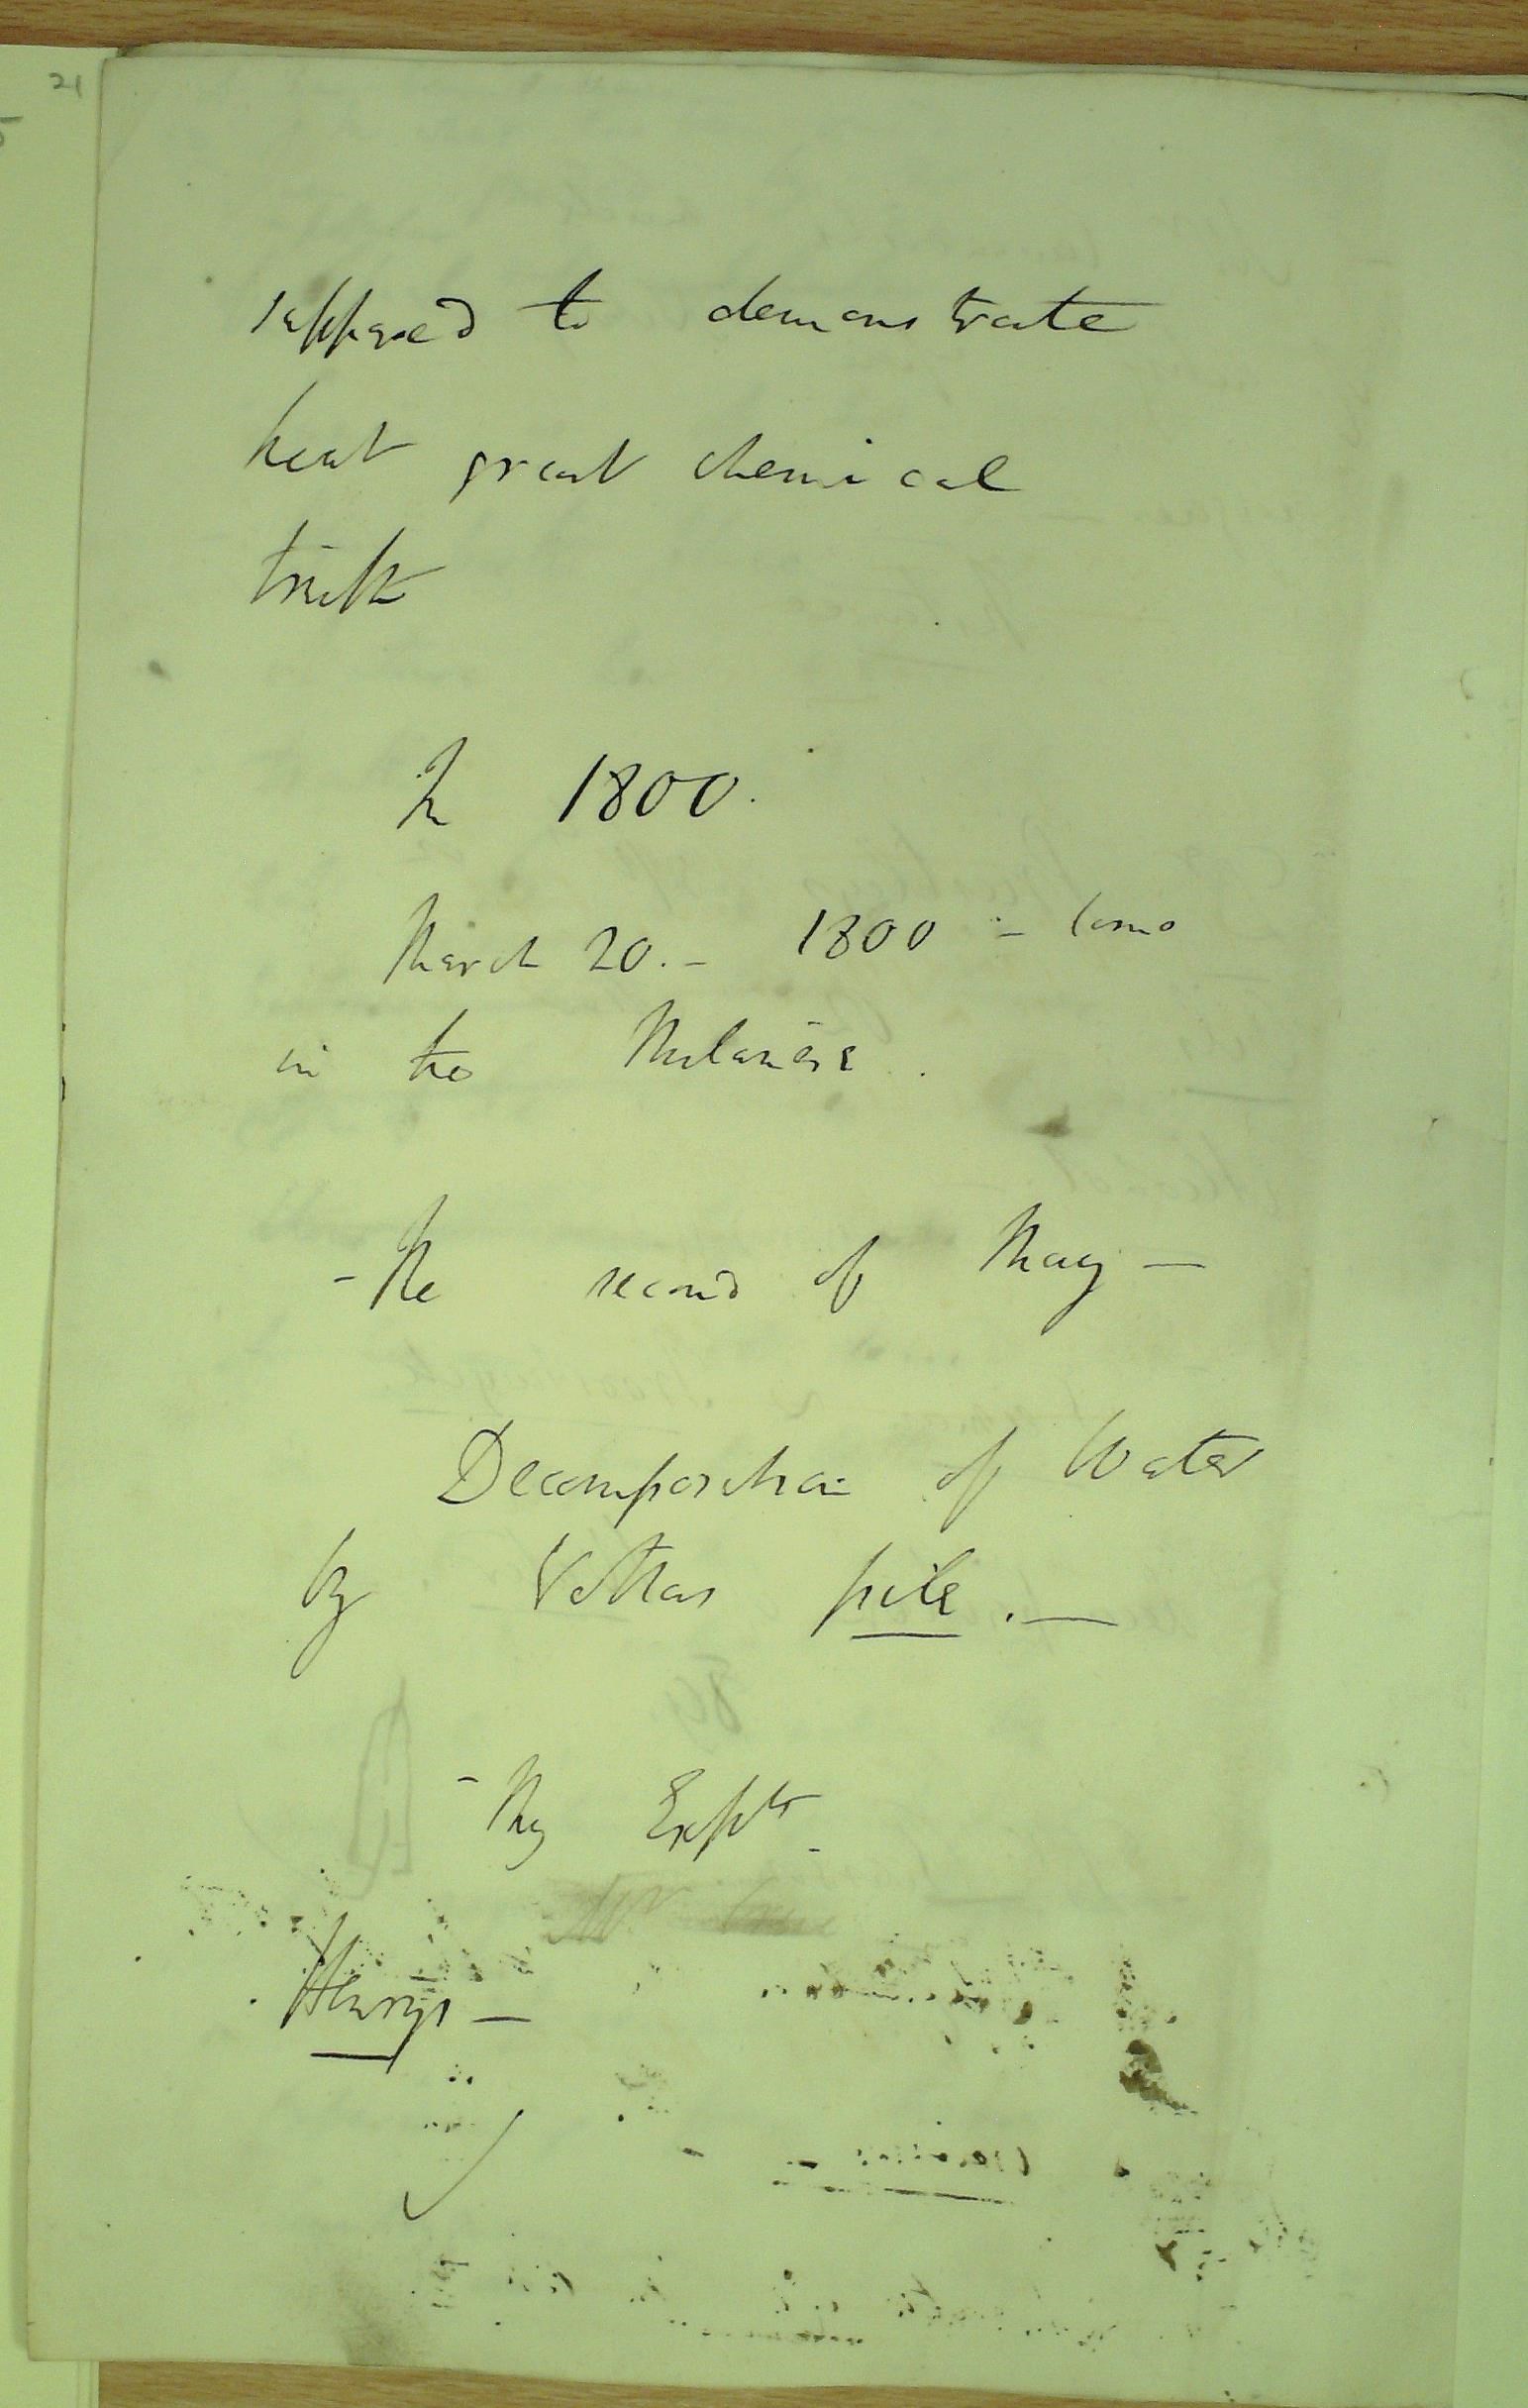 21
supposed to demonstrate
heat great chemical
truth
In 1800.
March 20. - 1800 - Como
in the Milanese.
- The second of May -
Decomposition of Water
by Voltas pile. -
- My Expts -
Henrys -